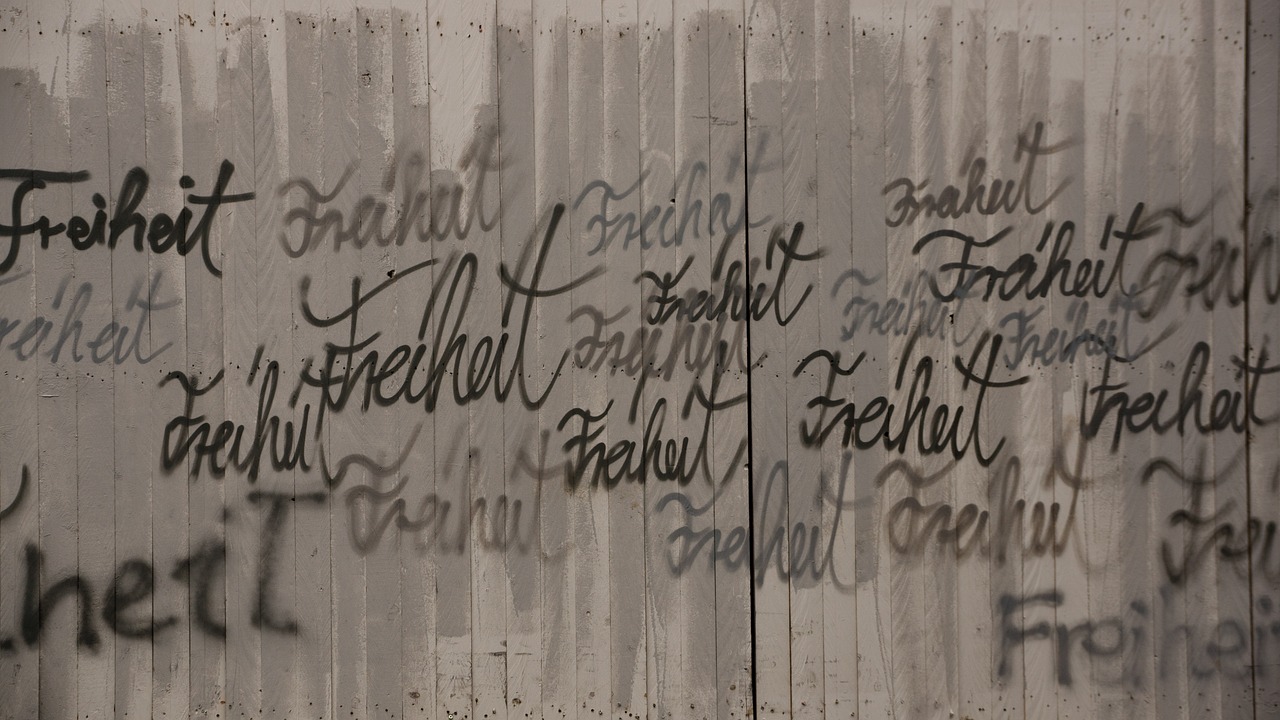 Freiheit Freiheit Freiheit Freiheit
Freiheit Freiheit Freih
reiheit Freiheit Freiheit Freiheit
Freiheit Freiheit Freiheit Freiheit
Freiheit Freiheit Freiheit Freiheit Frei
heit
Freihei